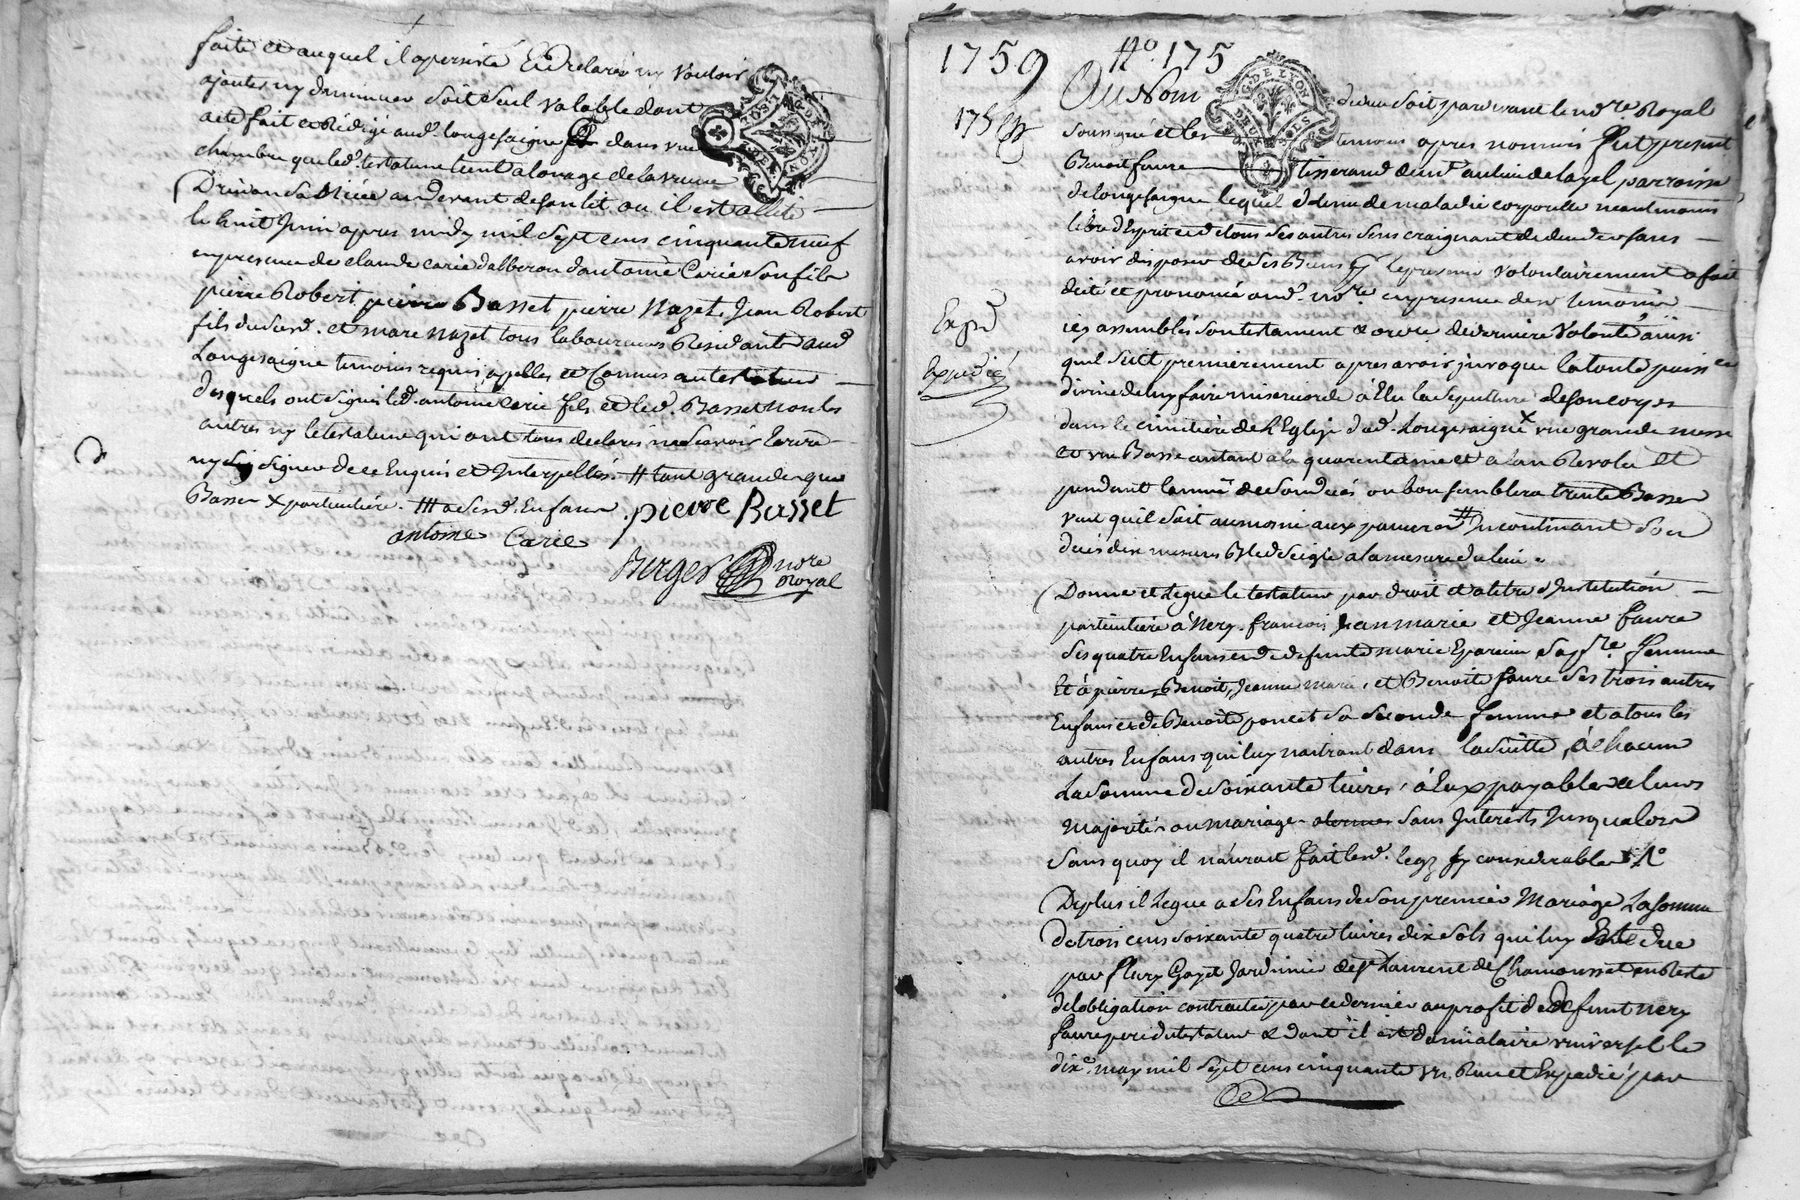 faite et auquel il a persisté Et declaré ny vouloir
ajouter ny diminuer soit seul valable dont
acte fait et rédigé aud. longesaigne dans une
chambre que led. testateur tient a louage de la veuve
au devant de son lit ou il est allité
le huit Juin apres midy mil sept cens cinquante neuf
en presence de claude carie d'antoine Carie son fils
pierre Robert pierre Basset pierre Nazet Jean Robert
fils dud. et marc nazet tous laboureurs Residants aud.
Longesaigne temoins requis apellés et Connus au testateur
desquels ont signé led. antoine carie fils et led. Basset non les
autres ny le testateur qui ont tous declaré ne scavoir Ecrire
ny signer de ce Enquis et Interpellés. # tant grande que
Basse X particuliere. # a sesd. Enfans
pierre Basset
antoine Carie
Berger nore
Royal
1759
N.º 175
175
G. DE LYON
DEUX SOLS
Au Nom de dieu soit pardevant le no.re Royal
soussigné et les temoins apres nommés fut present
Benoit faure tisserand dem.t au lieu de layel parroisse
de longesaigne lequel detenu de maladie corporelle neantmoins
libre d'Esprit et de tous ses autres sens craignant de deceder sans
avoir disposé de ses Biens volontairement a fait
dicté et prononcé aud. no.re en presence des temoins
icy assemblés son testament & ordre de derniere volonté ainsi
quil suit premierement apres avoir invoqué la toute puiss.ce
divine de luy faire misericorde à Elu la sepulture de son corps
dans le cimetiere de l'Eglise dud. Longesaigne X une grande messe
et une Basse autant a la quarantaine et a l'an Revolu et
pendant l'année de son decés ou bon semblera trente Basses
veut qu'il soit aumoné aux pauvres # incontinant son
decés dix mesures Bled seigle a la mesure du lieu.
Expd
Expedié
Donne et legue le testateur par droit et a titre d'Institution
particuliere à Nery, françois, jean marie et Jeanne faure
ses quatre Enfans et de defunte marie Eparcieu sa p.re femme
Et à pierre, Benoit, Jeanne Marie, et Benoite faure ses trois autres
Enfans et de Benoite poncet sa seconde femme et a tous les
autres Enfans qui luy naitront dans la suitte, à chacun
La somme de soixante livres, à Eux payable a leurs
Majorité ou mariage sans Interets Jusqu'alors
sans quoy il n'auroit fait lesd. legs sy considerables
Deplus il Legue a ses Enfans de son premier Mariage La somme
de trois cens soixante quatre livres dix sols qui luy Est due
par fleury Goyet Jardinier de S.t Laurent de Chamousset en Reste
de l'obligation contractée par ce dernier au profit de Defunt nery
faure pere du testateur & dont il est donnataire universel le
dix.e may mil sept cens cinquante un Recu et Expedié par